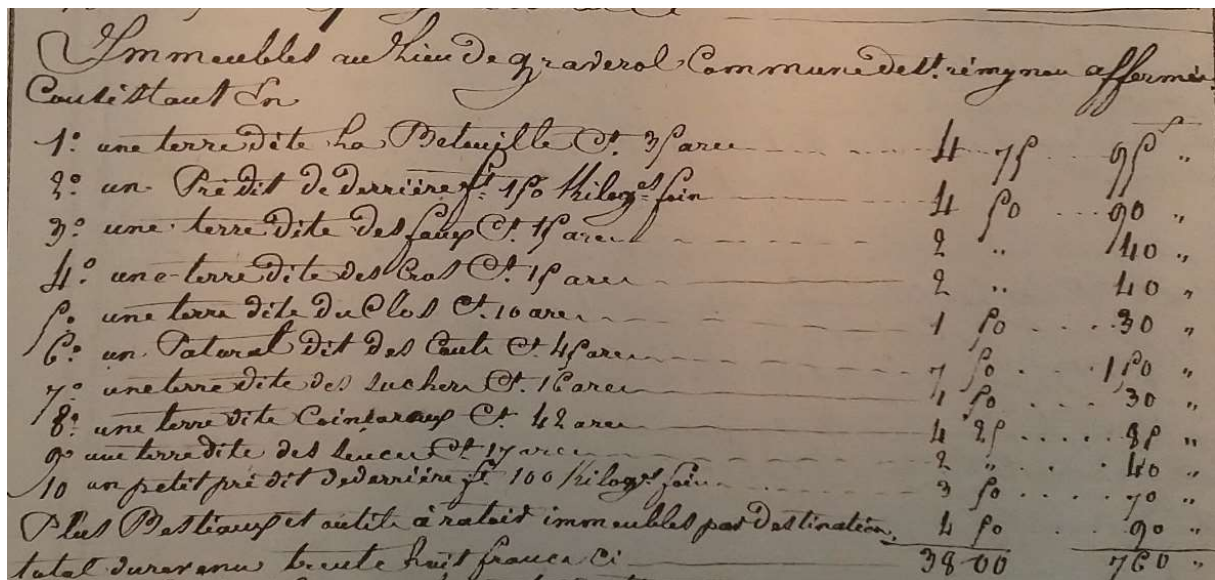 Immeubles au Lieu de graverol Commune de St. rémy non affermés
Consistant En
1º une terre dite La Ct. 35 ares 4 75 95 "
2º un Pré dit de derrière ft. 150 Kilogs foin 4 50 90 "
3º une terre dite des faux Ct. 15 ares 2 " 40 "
4º une terre dite des Cros Ct. 15 ares 2 " 40 "
5º une terre dite du Clos Ct. 10 ares 1 50 30 "
6º un Patural dit des Ct. 45 ares 7 50 150 "
7º une terre dite des suchers Ct. 16 ares 1 50 30 "
8º une terre dite Ct. 42 ares 4 25 85 "
9º une terre dite des Ct. 17 ares 2 " 40 "
10 un petit pré dit de derrière ft. 100 Kilogs foin 3 50 70 "
Plus Bestiaux et outils immeubles par Destination. 4 50 90 "
total du revenu trente huit francs Ci 38 00 760 "